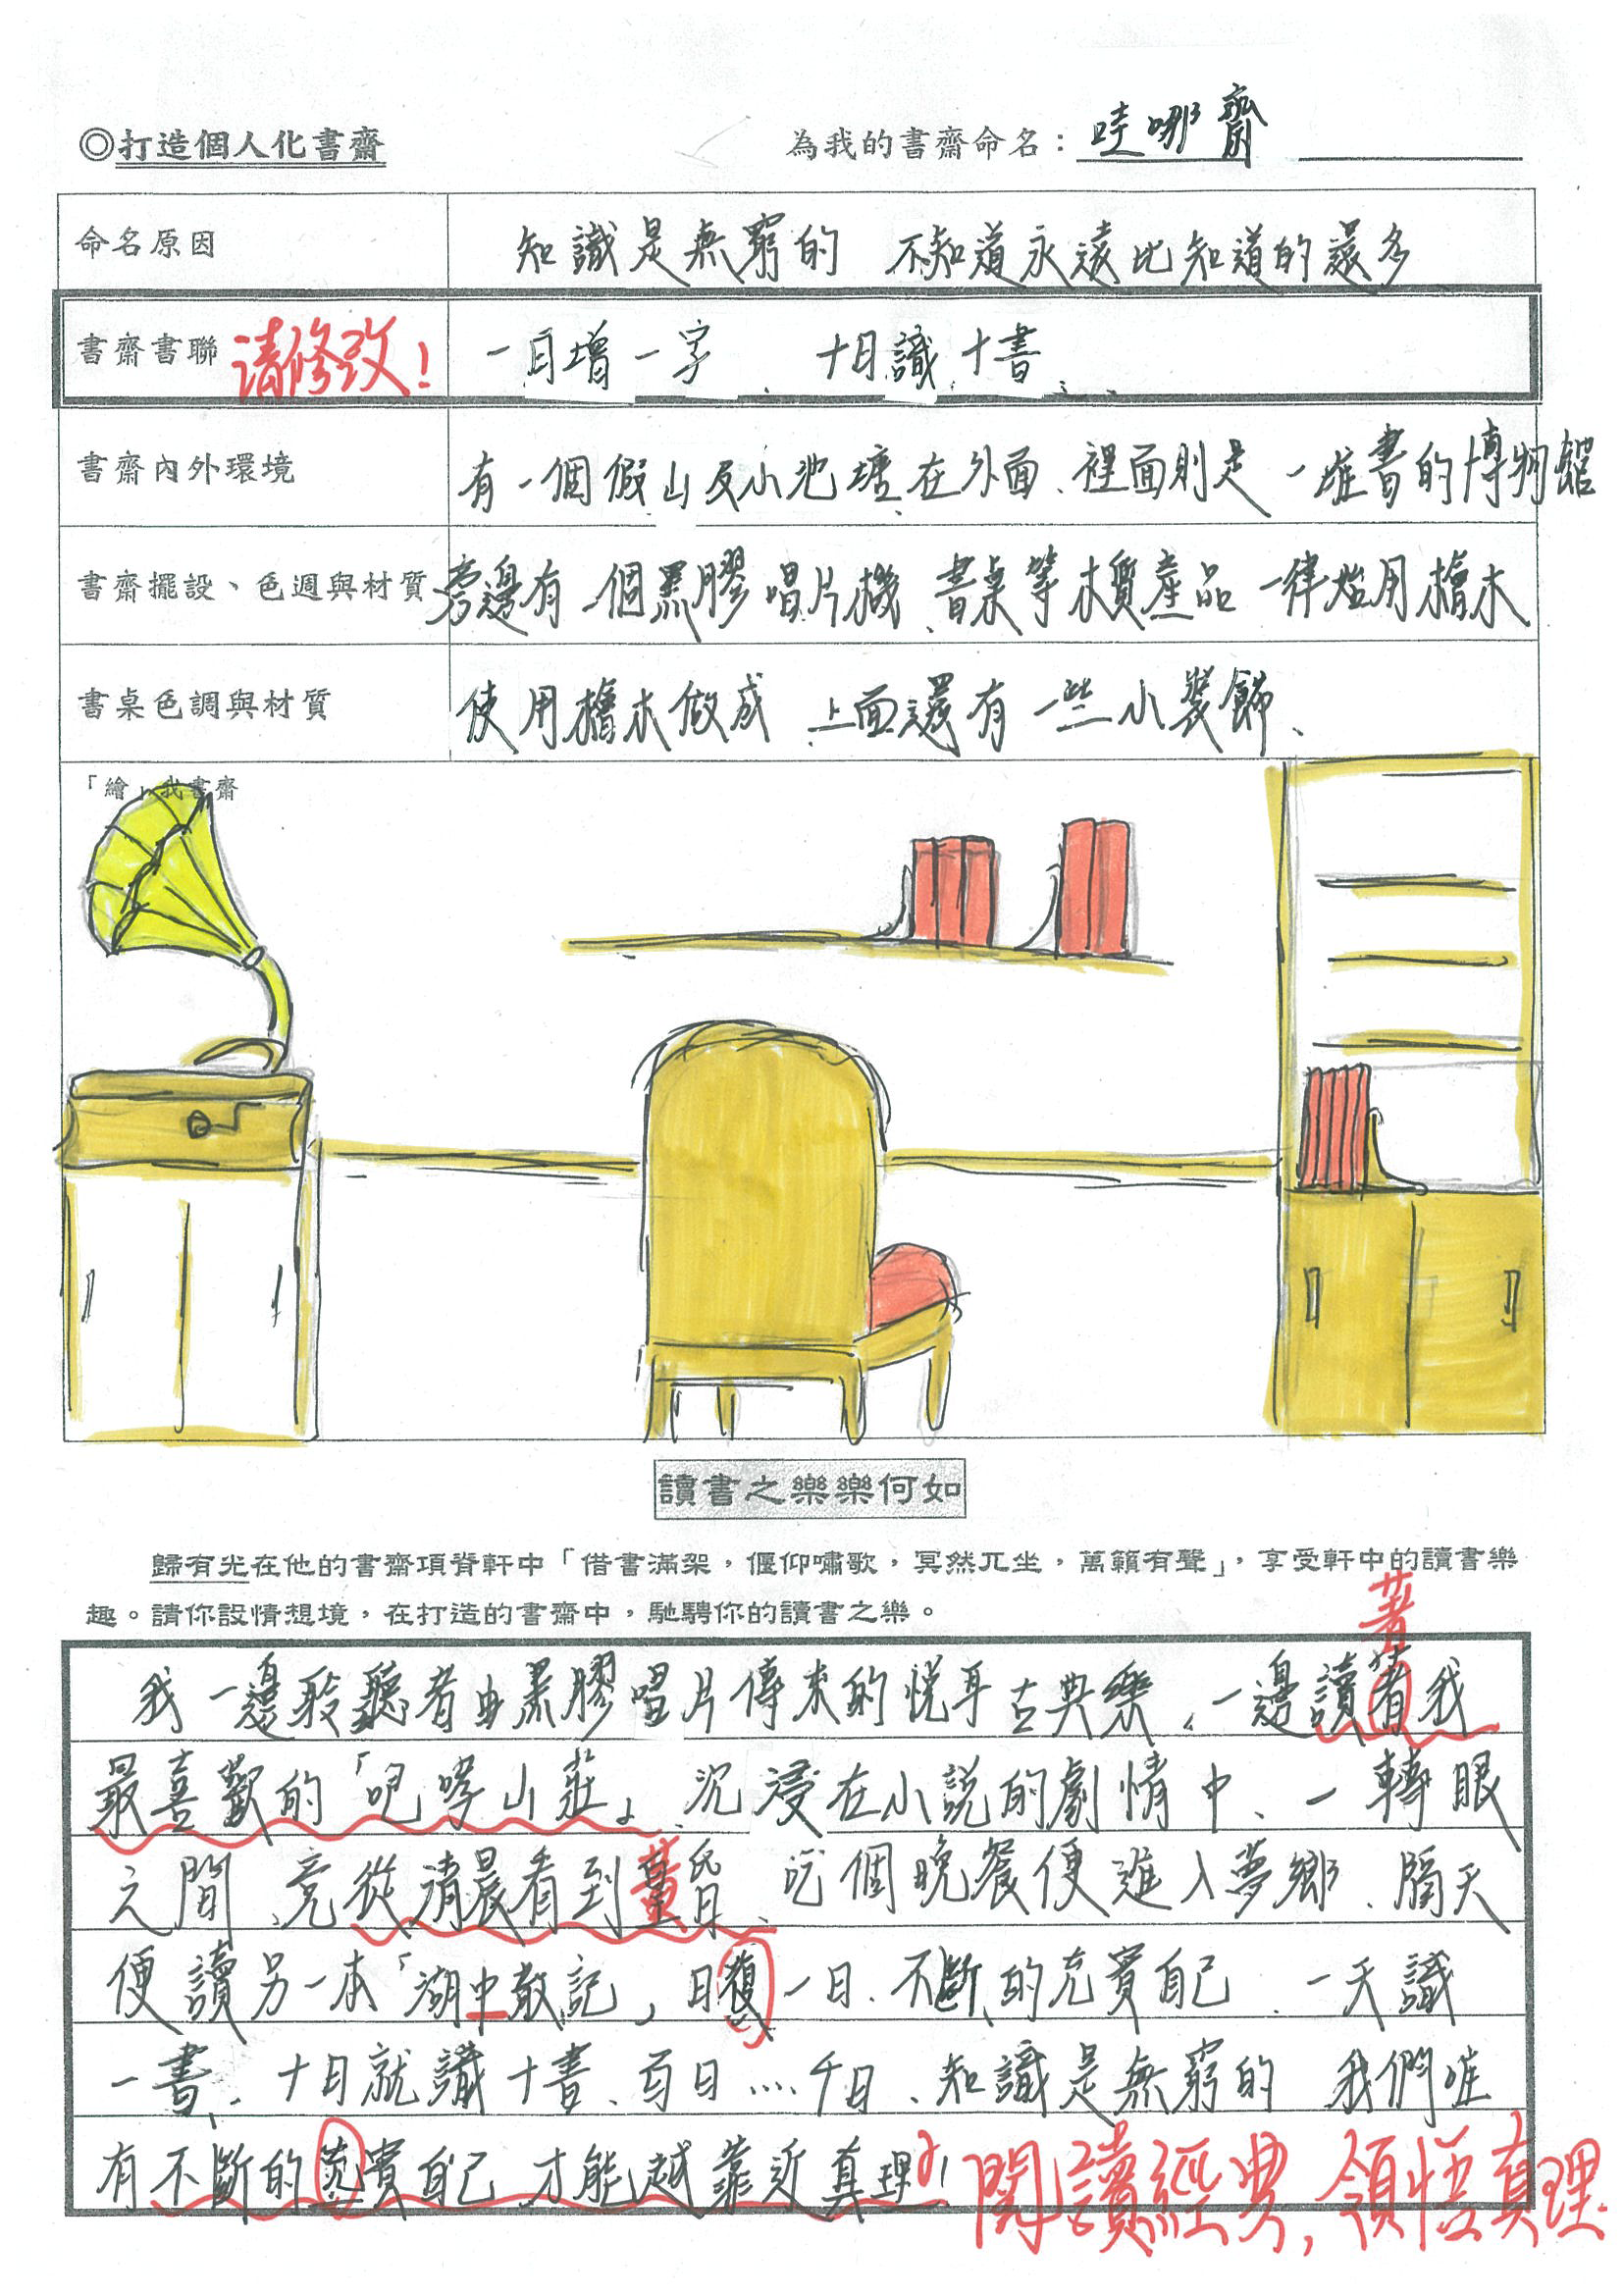 ◎打造個人化書齋 為我的書齋命名：哇哪齋
命名原因 知識是無窮的 不知道永遠比知道的還多
書齋書聯 请修改！ 一日增一字、十日識十書
書齋內外環境 有一個假山及小池塘在外面、裡面則是一堆書的博物館
書齋擺設、色週與材質 旁邊有一個黑膠唱片機、書桌等木質產品一律始用檜木
書桌色調與材質 使用檜木做成、上面還有一些小裝飾、
「繪」我書齋
讀書之樂樂何如
歸有光在他的書齋項脊軒中「借書滿架，偃仰嘯歌，冥然兀坐，萬籟有聲」，享受軒中的讀書樂
趣。請你設情想境，在打造的書齋中，馳騁你的讀書之樂。
著
我一邊聆聽者由黑膠唱片傳來的悅耳古典樂、一邊讀著我
最喜歡的「咆哮山莊」、沉浸在小說的劇情中、一轉眼
之間、竟從清晨看到黃昏、吃個晚餐便進入夢鄉、隔天
便讀另一本「湖中散記」、日復一日、不斷的充實自己、一天識
一書、十日就識十書、百日....千日、知識是無窮的 我們唯
有不斷的充實自己、才能越靠近真理！
閱讀經典，領悟真理.